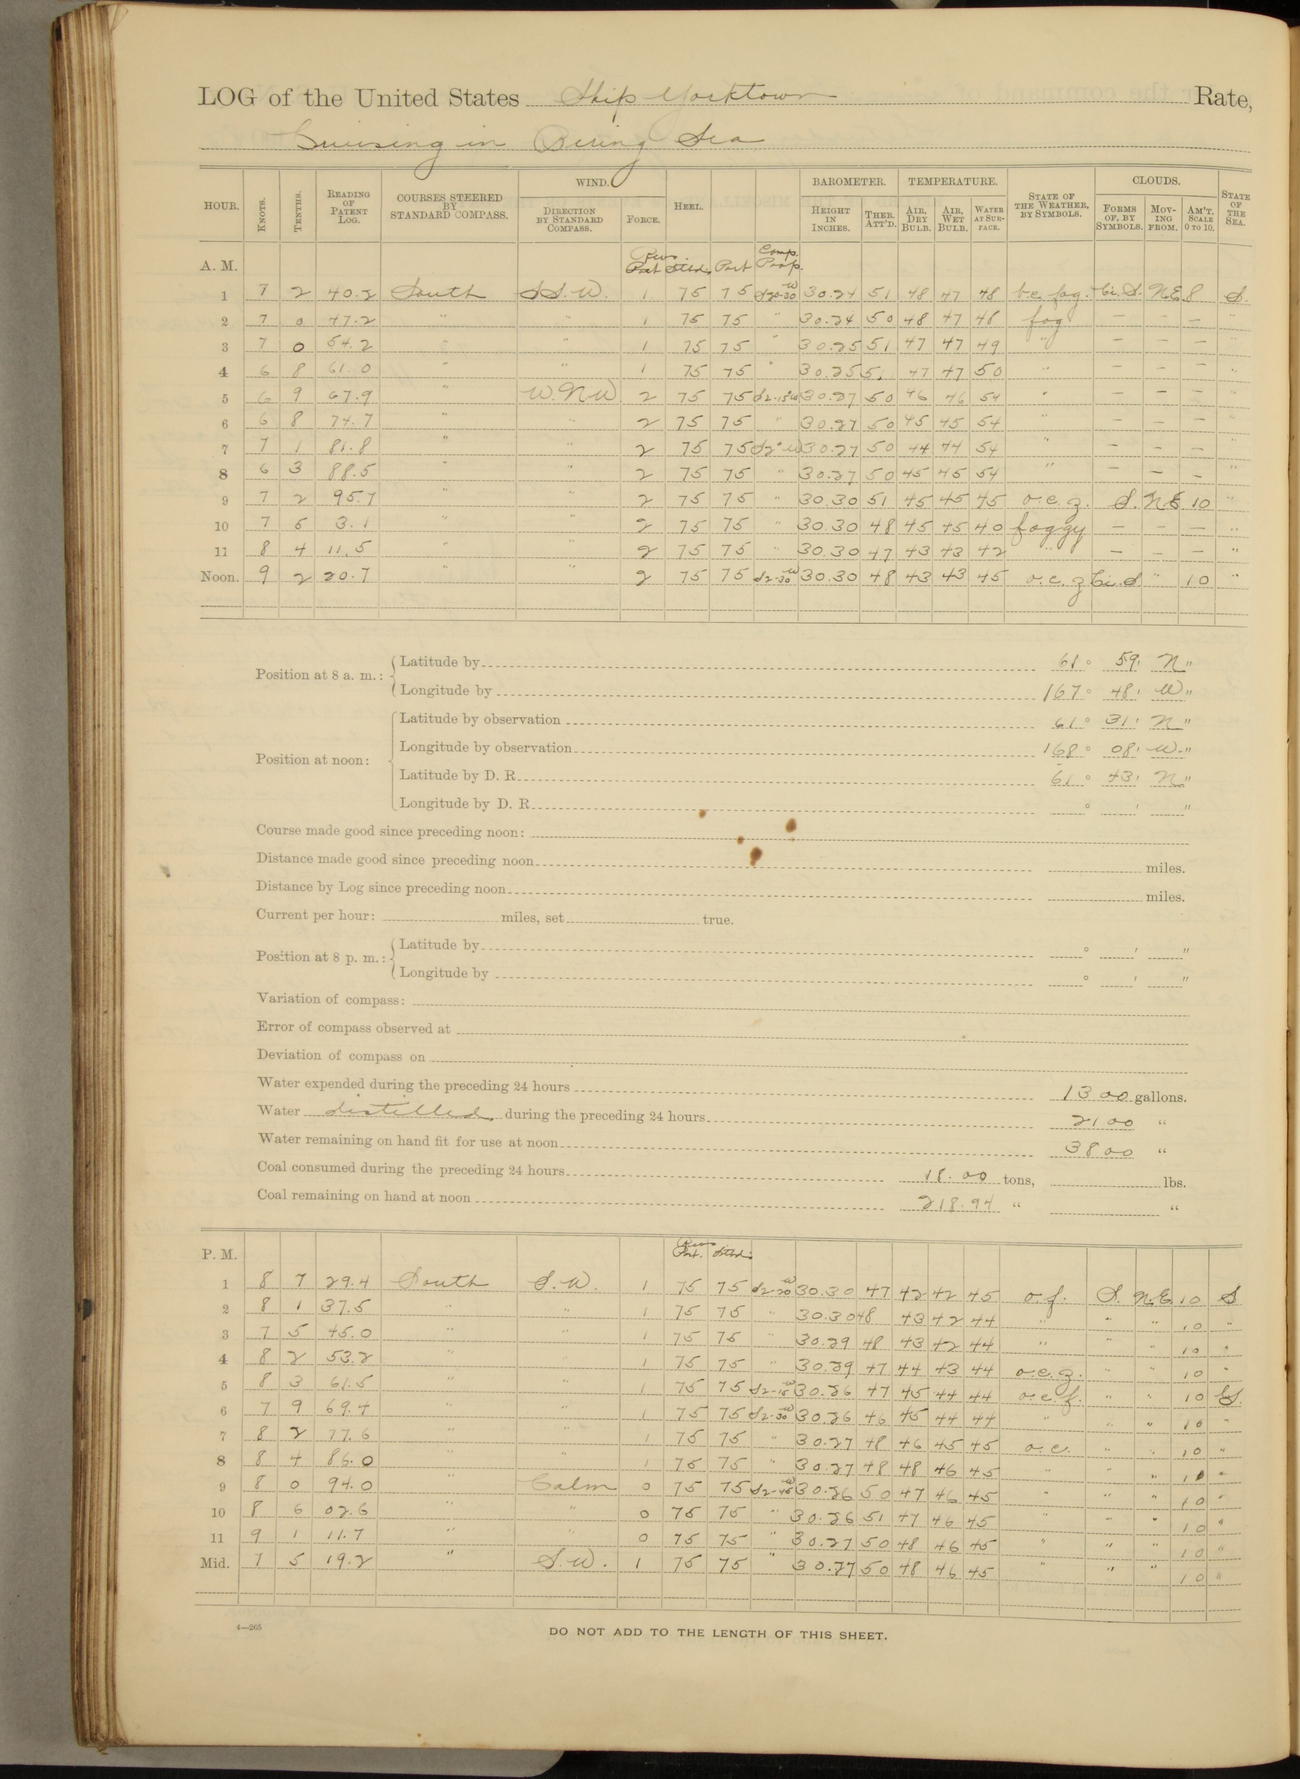 LOG of the United States Ship Yorktown Rate,
Cruising in Bering Sea
HOUR. KNOTS. TENTHS. READING OF PATENT LOG. COURSES STEERED BY STANDARD COMPASS. WIND. DIRECTION BY STANDARD COMPASS. FORCE. HEEL. BAROMETER. HEIGHT IN INCHES. THER. ATT'D. TEMPERATURE. AIR, DRY BULB. AIR, WET BULB. WATER AT SURFACE. STATE OF THE WEATHER, BY SYMBOLS. CLOUDS. FORMS OF, BY SYMBOLS. MOVING FROM. AM'T, SCALE 0 TO 10. STATE OF THE SEA.
A. M. Revs Port Stbd. Port Comp. Prop.
1 7 2 40.2 South S S.W. 1 75 75 30.24 51 48 47 48 b.c. fog. Ci. S. N E 8 S.
2 7 0 47.2 " " 1 75 75 " 30.24 50 48 47 48 fog — — — "
3 7 0 54.2 " " 1 75 75 " 30.25 51 47 47 49 " — — — "
4 6 8 61.0 " " 1 75 75 " 30.25 51 47 47 50 " — — — "
5 6 9 67.9 " W. N W 2 75 75 30.27 50 46 46 54 " — — — "
6 6 8 74.7 " " 2 75 75 " 30.27 50 45 45 54 " — — — "
7 7 1 81.8 " " 2 75 75 30.27 50 44 44 54 " — — — "
8 6 3 88.5 " " 2 75 75 " 30.27 50 45 45 54 " — — — "
9 7 2 95.7 " " 2 75 75 " 30.30 51 45 45 45 o.c.z. S. N E 10 "
10 7 5 3.1 " " 2 75 75 " 30.30 48 45 45 40 foggy — — — "
11 8 4 11.5 " " 2 75 75 " 30.30 47 43 43 42 " — — — "
Noon. 9 2 20.7 " " 2 75 75 S2-30W 30.30 48 43 43 45 o.c.z Ci.S " 10 "
Position at 8 a. m.: Latitude by 61° 59' N"
Longitude by 167° 48' W"
Position at noon: Latitude by observation 61° 31' N"
Longitude by observation 168° 08' W."
Latitude by D. R. 61° 43' N."
Longitude by D. R. ° ' "
Course made good since preceding noon:
Distance made good since preceding noon miles.
Distance by Log since preceding noon miles.
Current per hour: miles, set true.
Position at 8 p. m.: Latitude by ° ' "
Longitude by ° ' "
Variation of compass:
Error of compass observed at
Deviation of compass on
Water expended during the preceding 24 hours 1300 gallons.
Water distilled during the preceding 24 hours 2100 "
Water remaining on hand fit for use at noon 3800 "
Coal consumed during the preceding 24 hours 18.00 tons, lbs.
Coal remaining on hand at noon 218.94 " "
P. M. Revs Port. Stbd.
1 8 7 29.4 South S.W. 1 75 75 S2-30W 30.30 47 42 42 45 o.f. S. N.E. 10 S
2 8 1 37.5 " " 1 75 75 " 30.30 48 43 42 44 " " " 10 "
3 7 5 45.0 " " 1 75 75 " 30.29 48 43 42 44 " " " 10 "
4 8 2 53.2 " " 1 75 75 " 30.29 47 44 43 44 o.c.z. " " 10 "
5 8 3 61.5 " " 1 75 75 S2-15W 30.26 47 45 44 44 o.c.f. " " 10
6 7 9 69.4 " " 1 75 75 S2-30W 30.26 46 45 44 44 " " " 10 "
7 8 2 77.6 " " 1 75 75 " 30.27 48 46 45 45 o.c. " " 10 "
8 8 4 86.0 " " 1 75 75 " 30.27 48 48 46 45 " " " 10 "
9 8 0 94.0 " Calm 0 75 75 S2-45W 30.26 50 47 46 45 " " " 10 "
10 8 6 02.6 " " 0 75 75 " 30.26 51 47 46 45 " " " 10 "
11 9 1 11.7 " " 0 75 75 " 30.27 50 48 46 45 " " " 10 "
Mid. 7 5 19.2 " S.W. 1 75 75 " 30.27 50 48 46 45 " " " 10 "
4—265
DO NOT ADD TO THE LENGTH OF THIS SHEET.